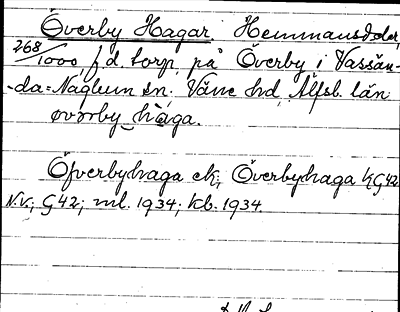 Överby Hagar. Hemmansdelar,
268/1000, f d torp, på Överby i Vassän-
-da=Naglum sn. Väne hd, Älfsb. län
øvərby_hàga.
Öfverbyhaga ek; Överbyhaga k, G42
N.V.; G42; ml. 1934; kb. 1934.